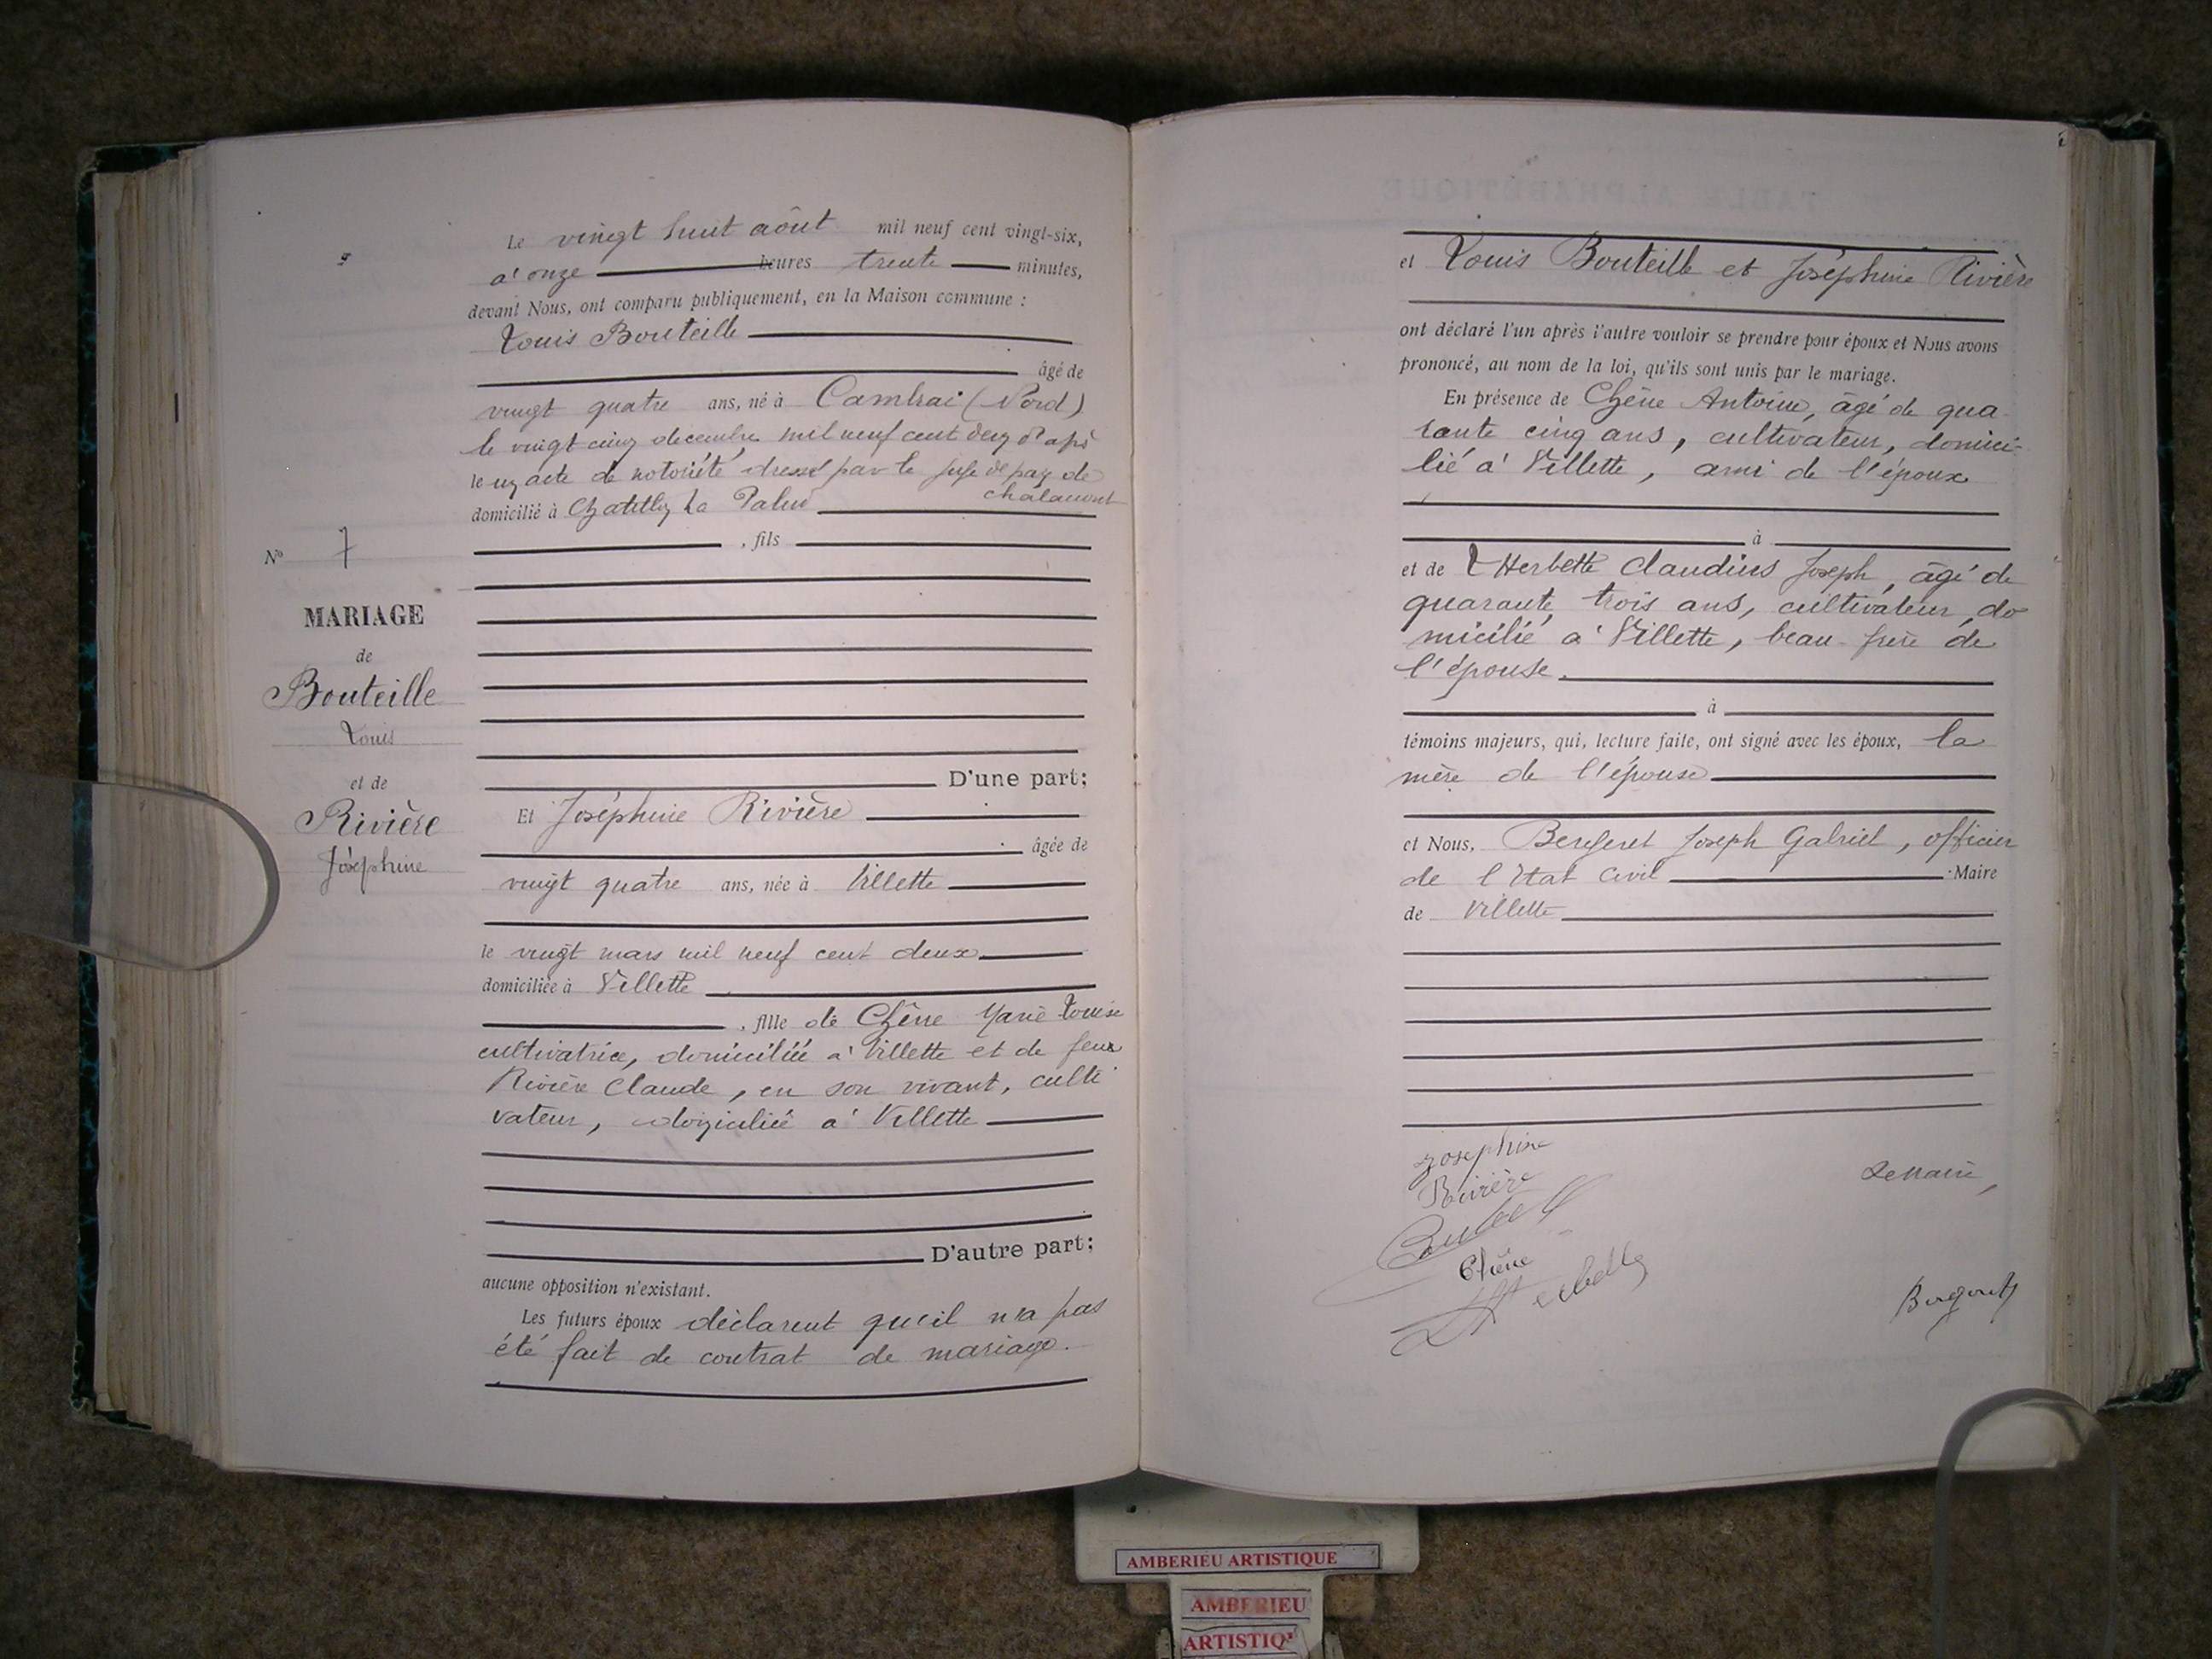 Le vingt huit août mil neuf cent vingt-six,
à onze heures trente minutes,
devant Nous, ont comparu publiquement, en la Maison commune :
Louis Bouteille
âgé de
vingt quatre ans, né à Cambrai (Nord)
le vingt cinq décembre mil neuf cent deux d'apr
le un acte de notoriété dressé par le juge de paix de
chalamont
domicilié à Chatillon la Palud
, fils
N° 7
MARIAGE
de
Bouteille
Louis
et de
Rivière
Joséphine
D'une part;
Et Joséphine Rivière
âgée de
vingt quatre ans, née à Villette
le vingt mars mil neuf cent deux
domiciliée à Villette
, fille de Chêne Marie Louise
cultivatrice, domiciliée à Villette et de feu
Rivière Claude, en son vivant, culti
vateur, domicilié à Villette
D'autre part;
aucune opposition n'existant.
Les futurs époux déclarent qu'il n'a pas
été fait de contrat de mariage.
et Louis Bouteille et Joséphine Rivière
ont déclaré l'un après l'autre vouloir se prendre pour époux et Nous avons
prononcé, au nom de la loi, qu'ils sont unis par le mariage.
En présence de Chêne Antoine, âgé de qua
rante cinq ans, cultivateur, domici-
lié à Villette, ami de l'époux
à
et de L'Herbette Claudius Joseph, âgé de
quarante trois ans, cultivateur, do
micilié à Villette, beau-frère de
l'épouse.
à
témoins majeurs, qui, lecture faite, ont signé avec les époux, la
mère de l'épouse
et Nous, Bergeret Joseph Gabriel, officier
de l'Etat Civil Maire
de Villette
Josephine
Rivière
Bouteill
Chêne
LHerbette
Le Maire,
Bergeret
AMBERIEU ARTISTIQUE
AMBERIEU
ARTISTIQ